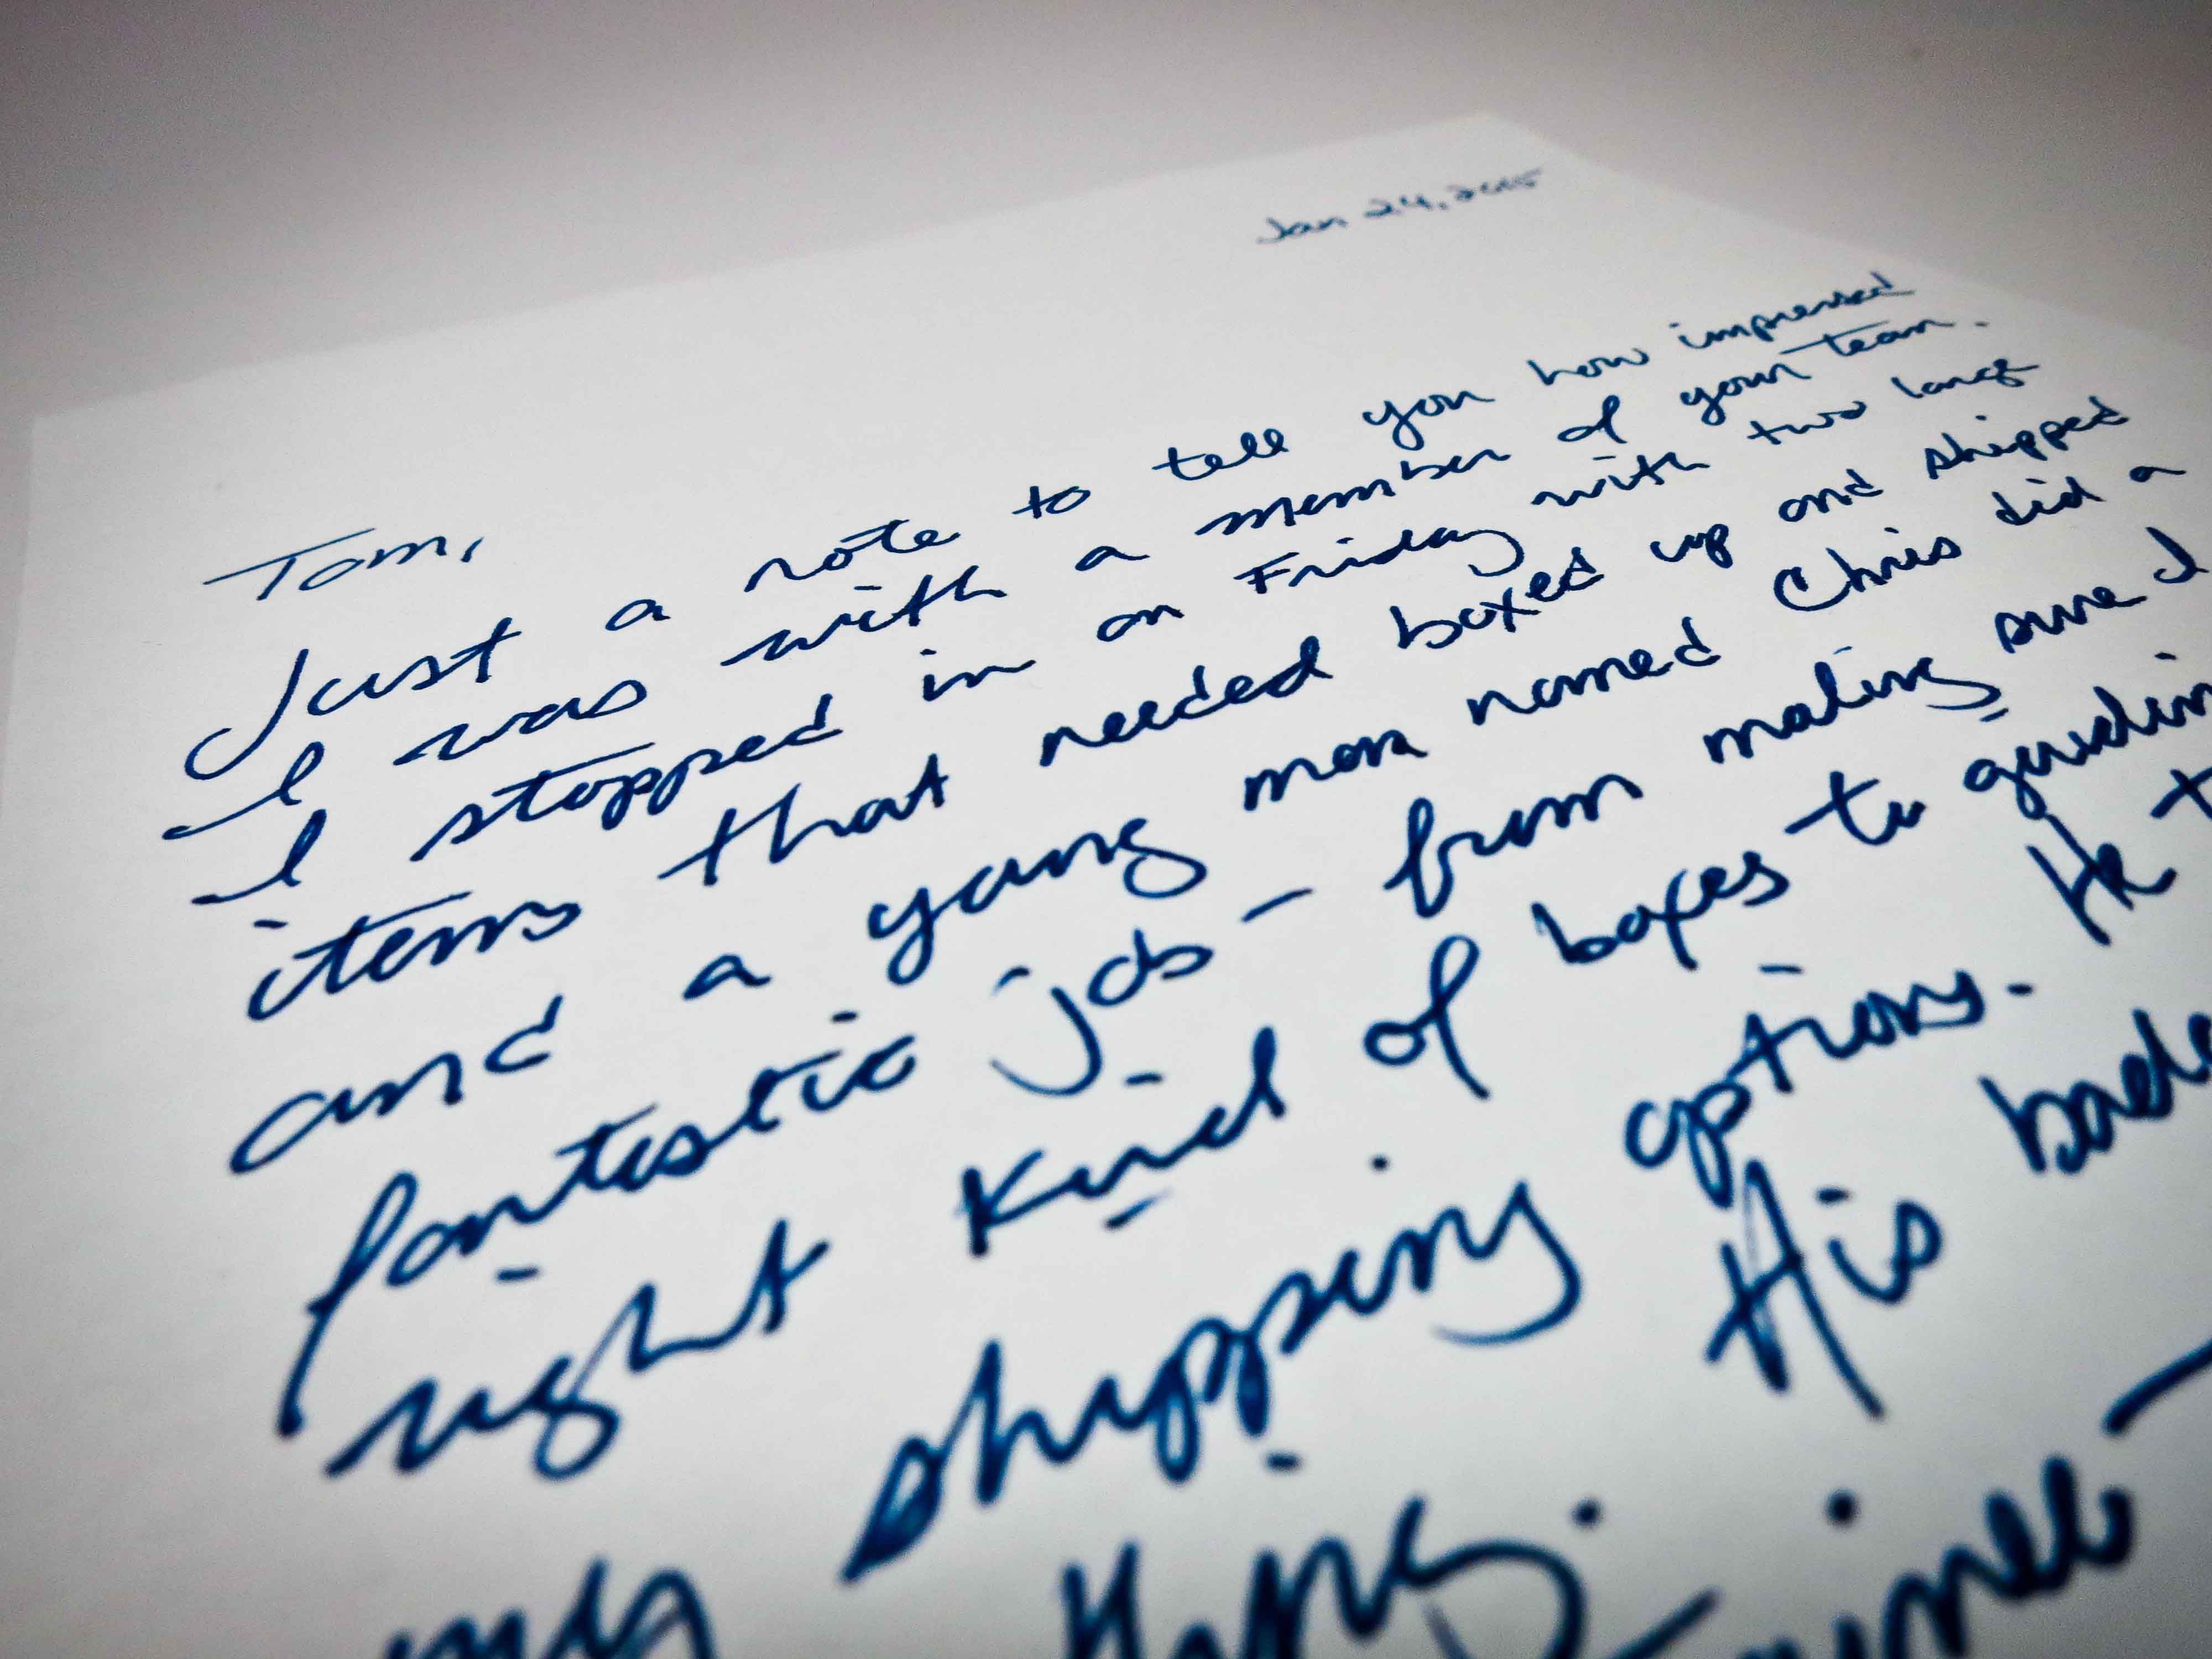 Jan 24, 2015
Tom,
Just a note to tell you how impressed
I was with a member of your team.
I stopped in on Friday with two large
items that needed boxed up and shipped
and a young man named Chris did a
fantastic job - from making sure I
right kind of boxes to guidin
my shipping options. He t
His bad